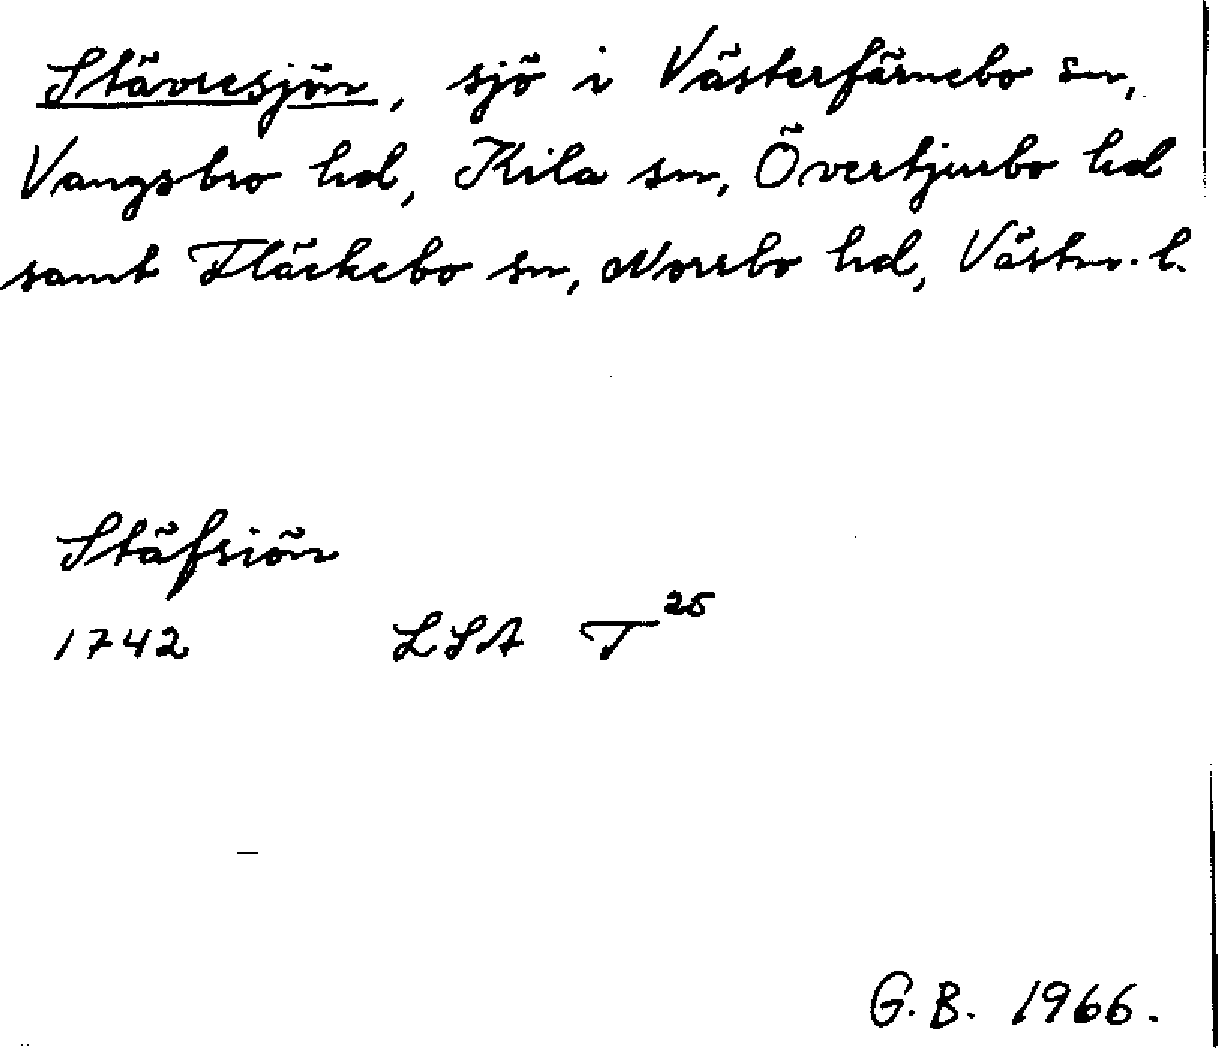 Stävresjön, sjö i Västerfärnebo sn,
Vangsbro hd, Kila sn, Övertjurbo hd
samt Fläckebo sn, Norrbo hd, Västm. l.
Stäfsiön
1742 LSA T 25
G.B. 1966.